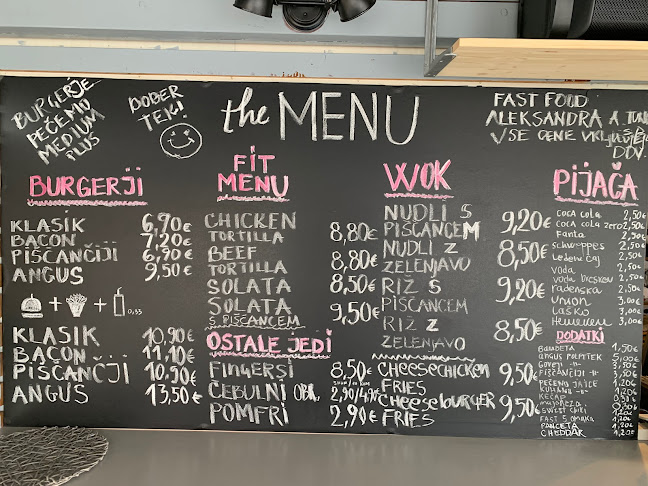 BURGERJE
PEČEMO
MEDIUM
PLUS
DOBER
TEK!
the MENU
FAST FOOD
ALEKSANDRA A.
VSE CENE
DDV.
BURGERJI
KLASIK 6,90€
BACON 7,20€
PIŠČANČJI 6,90€
ANGUS 9,50€
+ + 0,33
KLASIK 10,90€
BACON 11,10€
PIŠČANČJI 10,90€
ANGUS 13,50€
FIT
MENU
CHICKEN
TORTILLA 8,80€
BEEF
TORTILLA 8,80€
SOLATA 8,50€
SOLATA
S PIŠČANCEM 9,50€
OSTALE JEDI
FINGERSI 8,50€
ČEBULNI OBR. 2,90/4,90€
POMFRI 2,90€
WOK
NUDLI S
PIŠČANCEM 9,20€
NUDLI Z
ZELENJAVO 8,50€
RIŽ S
PIŠČANCEM 9,20€
RIŽ Z
ZELENJAVO 8,50€
CHEESECHICKEN
FRIES 9,50€
CHEESEBURGER
FRIES 9,50€
PIJAČA
COCA COLA 2,50€
COCA COLA ZERO 2,50€
Fanta 2,50€
Schweppes 2,50€
Ledeni čaj 2,50€
VODA
VODA
Radenska
UNION 3,00€
LAŠKO 3,00€
Heineken 3,00€
DODATKI
BOMBETA 1,50€
ANGUS POLPETEK 5,00€
GOVEJI -||-
PIŠČANČJI -||-
PEČENO JAJCE 1,20€
KUHANO -||-
KEČAP
MAJONEZA
SWEET CHILI
PANCETA
CHEDDAR 1,20€